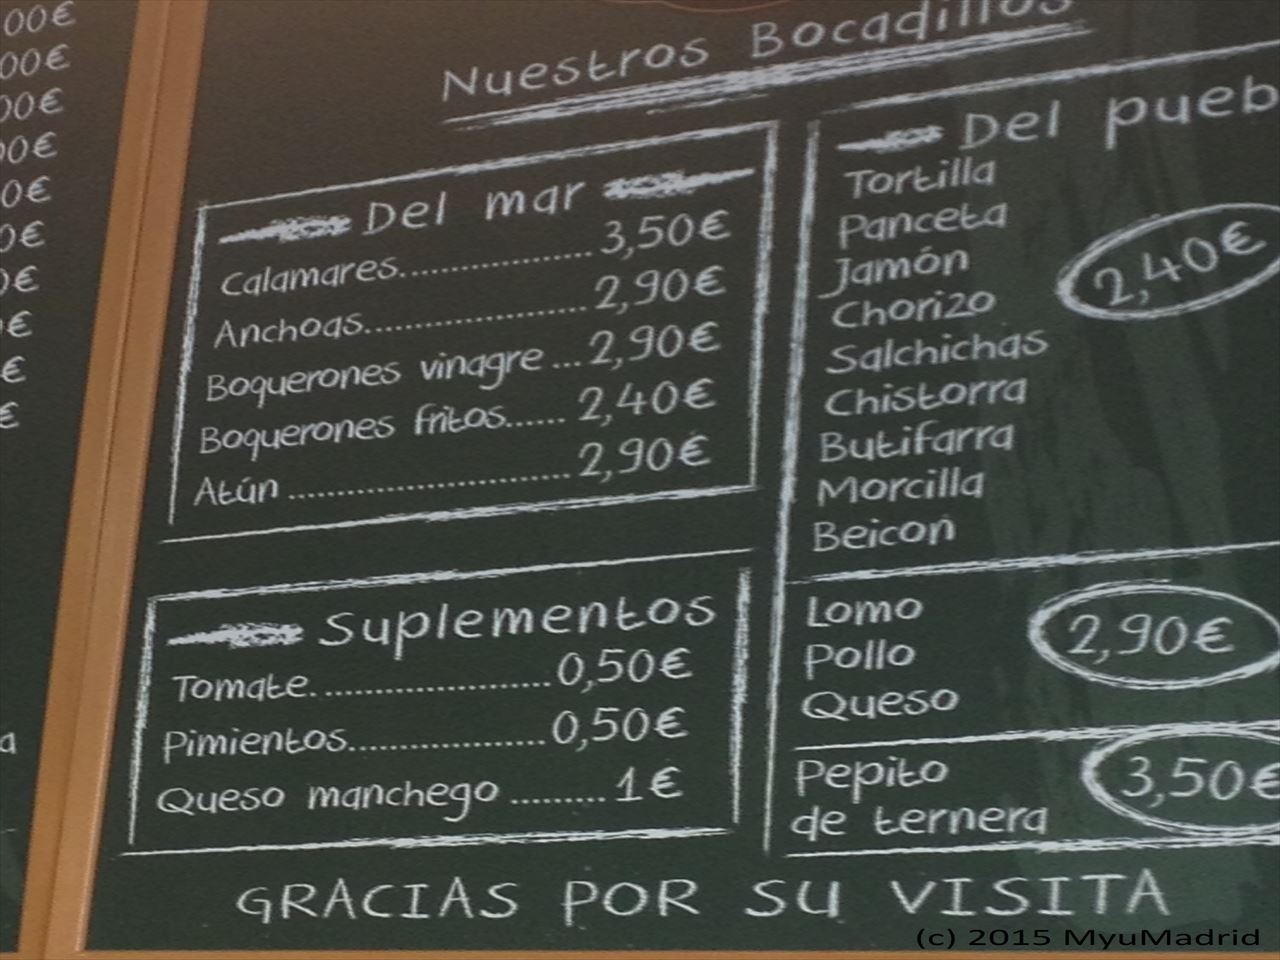 00€
00€
00€
00€
0€
0€
0€
€
€
€
a
Nuestros Bocadillos
Del mar
Calamares.................. 3,50€
Anchoas..................... 2,90€
Boquerones vinagre ... 2,90€
Boquerones fritos...... 2,40€
Atún .......................... 2,90€
Suplementos
Tomate....................... 0,50€
Pimientos................... 0,50€
Queso manchego ......... 1€
Del pueb
Tortilla
Panceta
Jamón
Chorizo
Salchichas
Chistorra
Butifarra
Morcilla
Beicon
2,40€
Lomo
Pollo
Queso
2,90€
Pepito
de ternera
3,50€
GRACIAS POR SU VISITA
(c) 2015 MyuMadrid